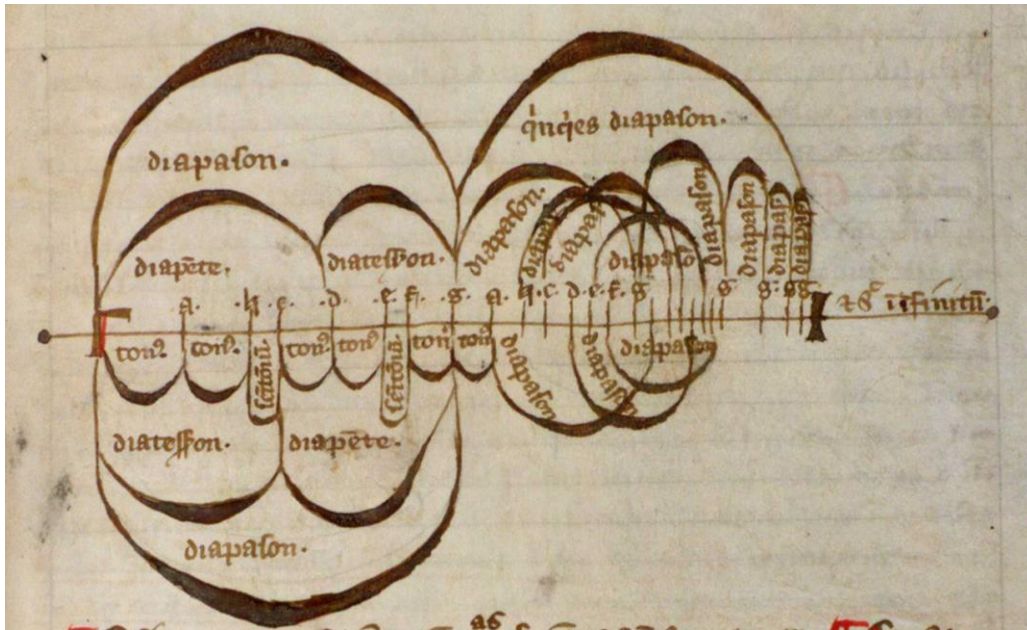 diapason.
q̇nq̇es diapason.
diapason.
diapason
diapason
diapason
diapason
diapason
diapē̄te.
diatessron.
diapaso
.a. .h. .c. .d. .e. .f. .g. .a. .h. .c. .d. .e. .f. .g. .g. .g. .gg.
Γ
⁊ sͣ ī īfinitū.
tonꝰ. tonꝰ. semitoniū. tonꝰ tonꝰ semitoniū tonꝰ tonꝰ
diapason
diapason
diapason
diatessron.
diapēte.
diapason.